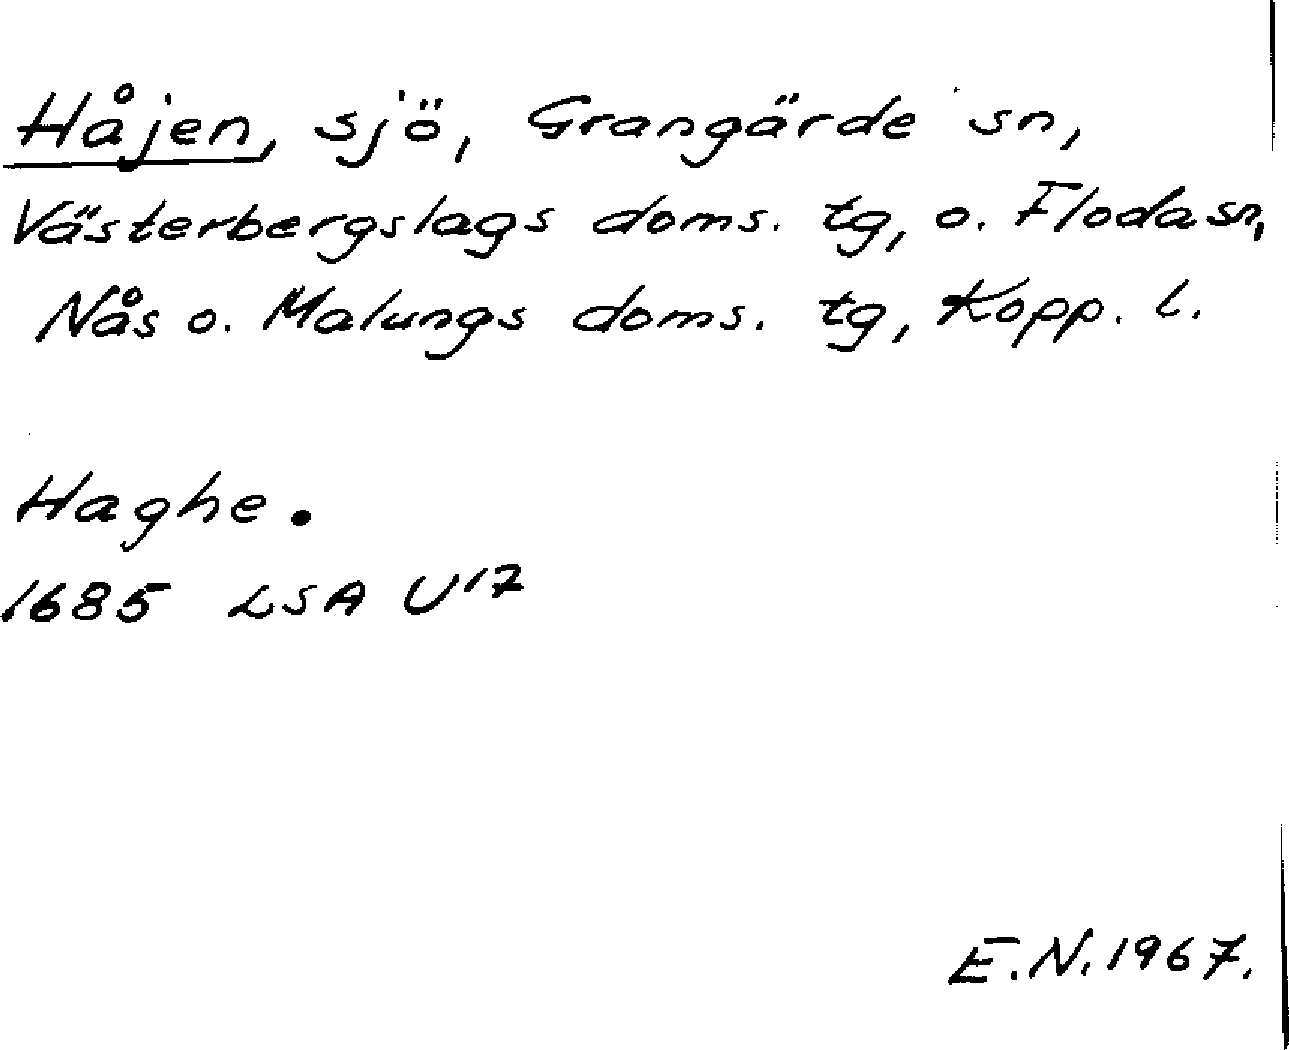 Håjen, sjö, Grangärde sn,
Västerbergslags doms. tg, o. Floda sn,
Nås o. Malungs doms. tg, Kopp. l.
Haghe.
1685 LSA U17
E.N. 1967.